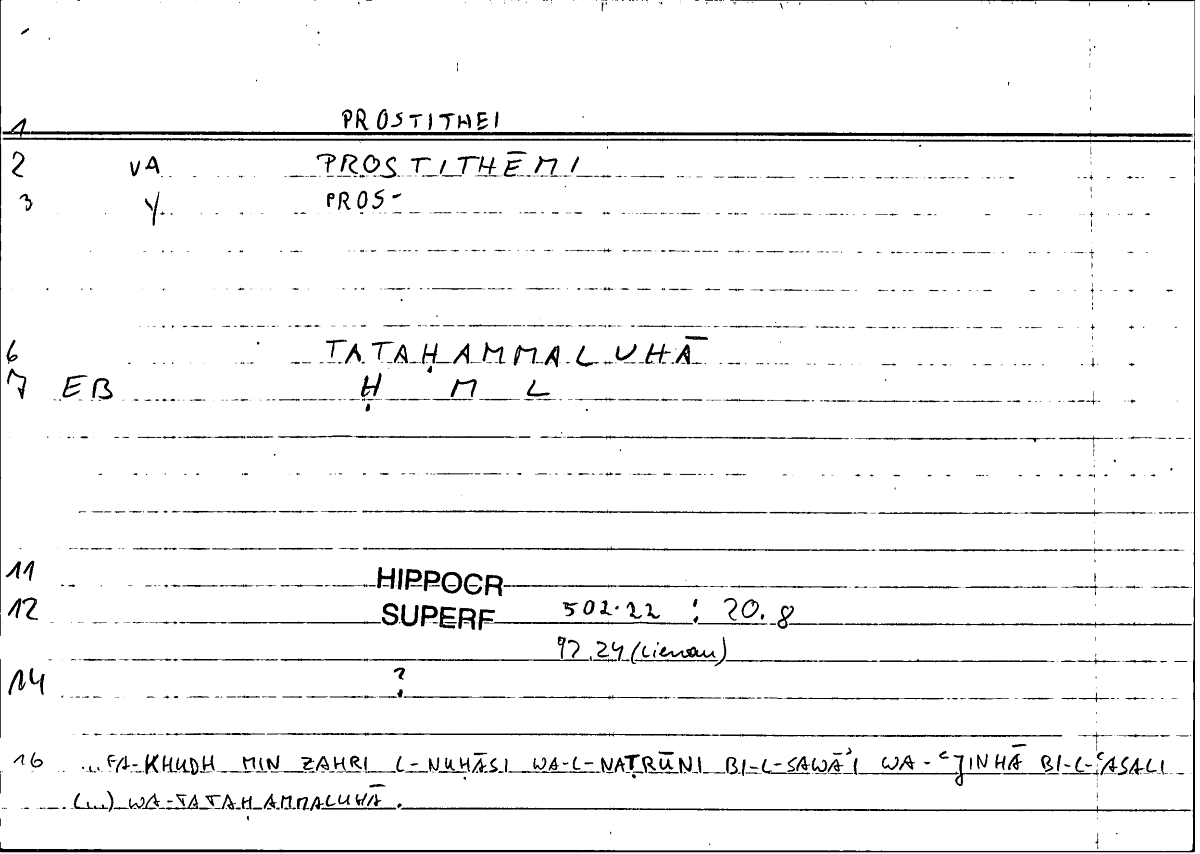 1 PROSTITHEI
2 VA PROSTITHĒMI
3 Y PROS-
6 TATAḤAMMALUHĀ
7 EB Ḥ M L
11 HIPPOCR
12 SUPERF 502.22 : 20.8
92.24 (Lienau)
14 ?
16 ...FA-KHUDH MIN ZAHRI L-NUḤĀSI WA-L-NAṬRŪNI BI-L-SAWĀʾI WA-ʿJINHĀ BI-L-ʿASALI
(...) WA-TATAḤAMMALUHĀ.